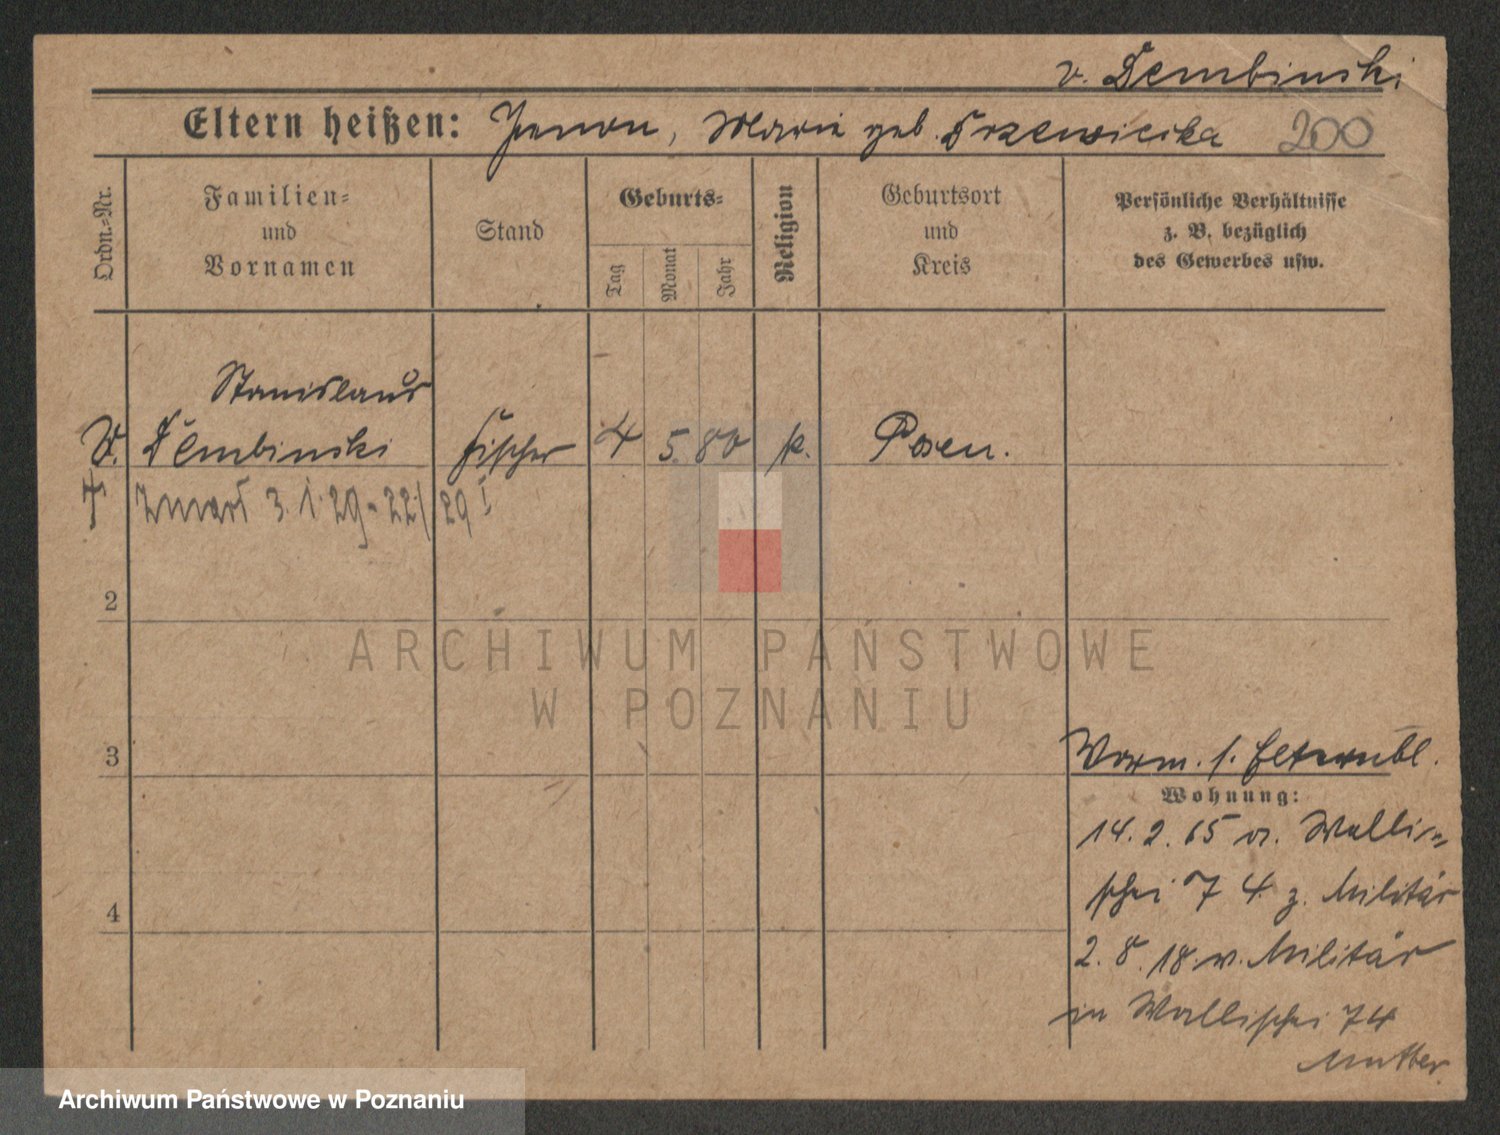 v. Dembinski
Eltern heißen: Zenon, Marie geb. Drzewiecka 200
Ordn.-Nr.
Familien-
und
Vornamen
Stand
Geburts-
Tag
Monat
Jahr
Religion
Geburtsort
und
Kreis
Persönliche Verhältnisse
z. B. bezüglich
des Gewerbes usw.
Stanislaus
Dembinski Fischer 4 5. 80 k. Posen.
† zmarł 3. 1. 29 - 22/ 29 I
2
3
4
Vorm. s. Elternbl.
Wohnung:
14. 2. 15 v. Walli-
schei 74 z. Militär
2. 8. 18. v. Militär
in Wallischei 74
Mutter.
ARCHIWUM PAŃSTWOWE
W POZNANIU
Archiwum Państwowe w Poznaniu